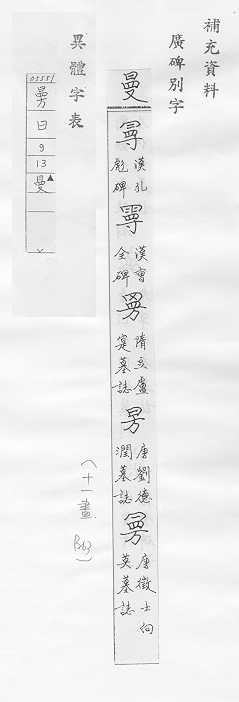 補充資料
廣碑別字
曼
漢孔
彪碑
漢曹
全碑
隋亥盧
寔墓誌
唐劉德
潤墓誌
唐徵士向
英墓誌
(十一畫 B63)
異體字表
05551
日
9
13
曼▲